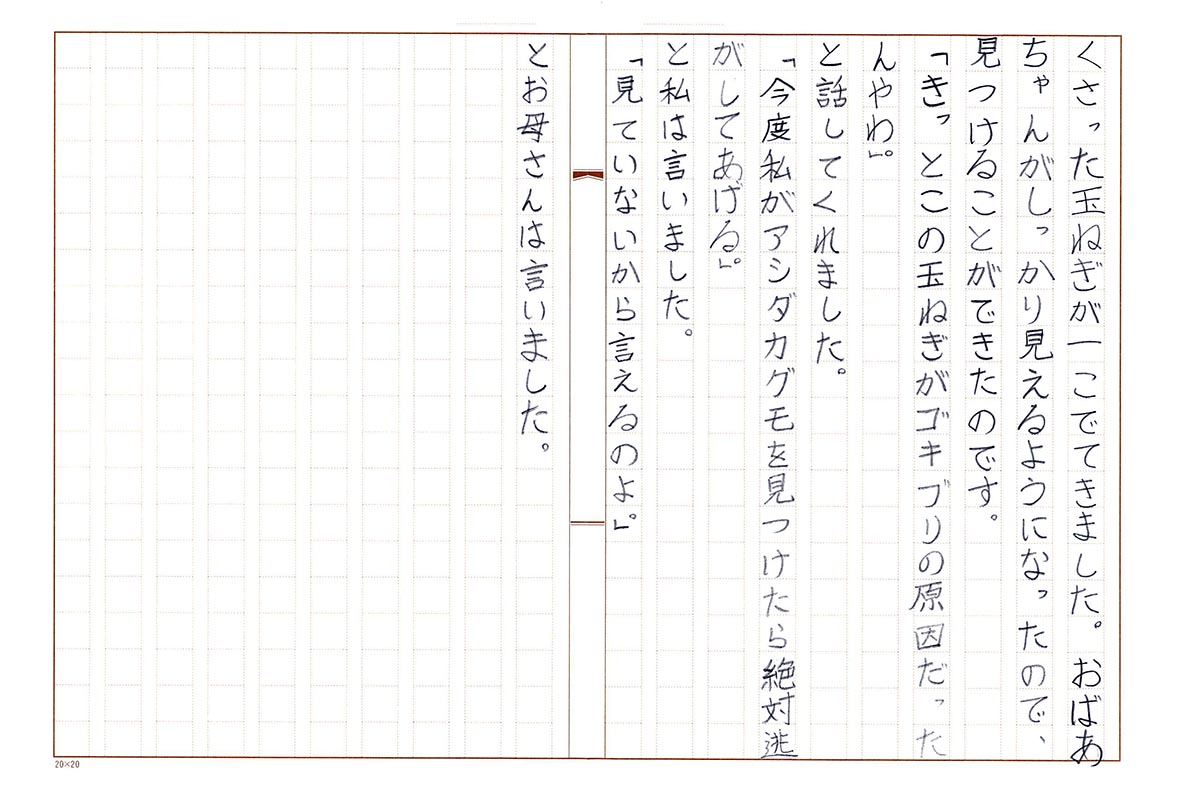 くさった玉ねぎが一こでてきました。おばあ
ちゃんがしっかり見えるようになったので、
見つけることができたのです。
「きっとこの玉ねぎがゴキブリの原因だった
んやわ」。
と話してくれました。
「今度私がアシダカグモを見つけたら絶対逃
がしてあげる」。
と私は言いました。
「見ていないから言えるのよ」。
とお母さんは言いました。
20×20